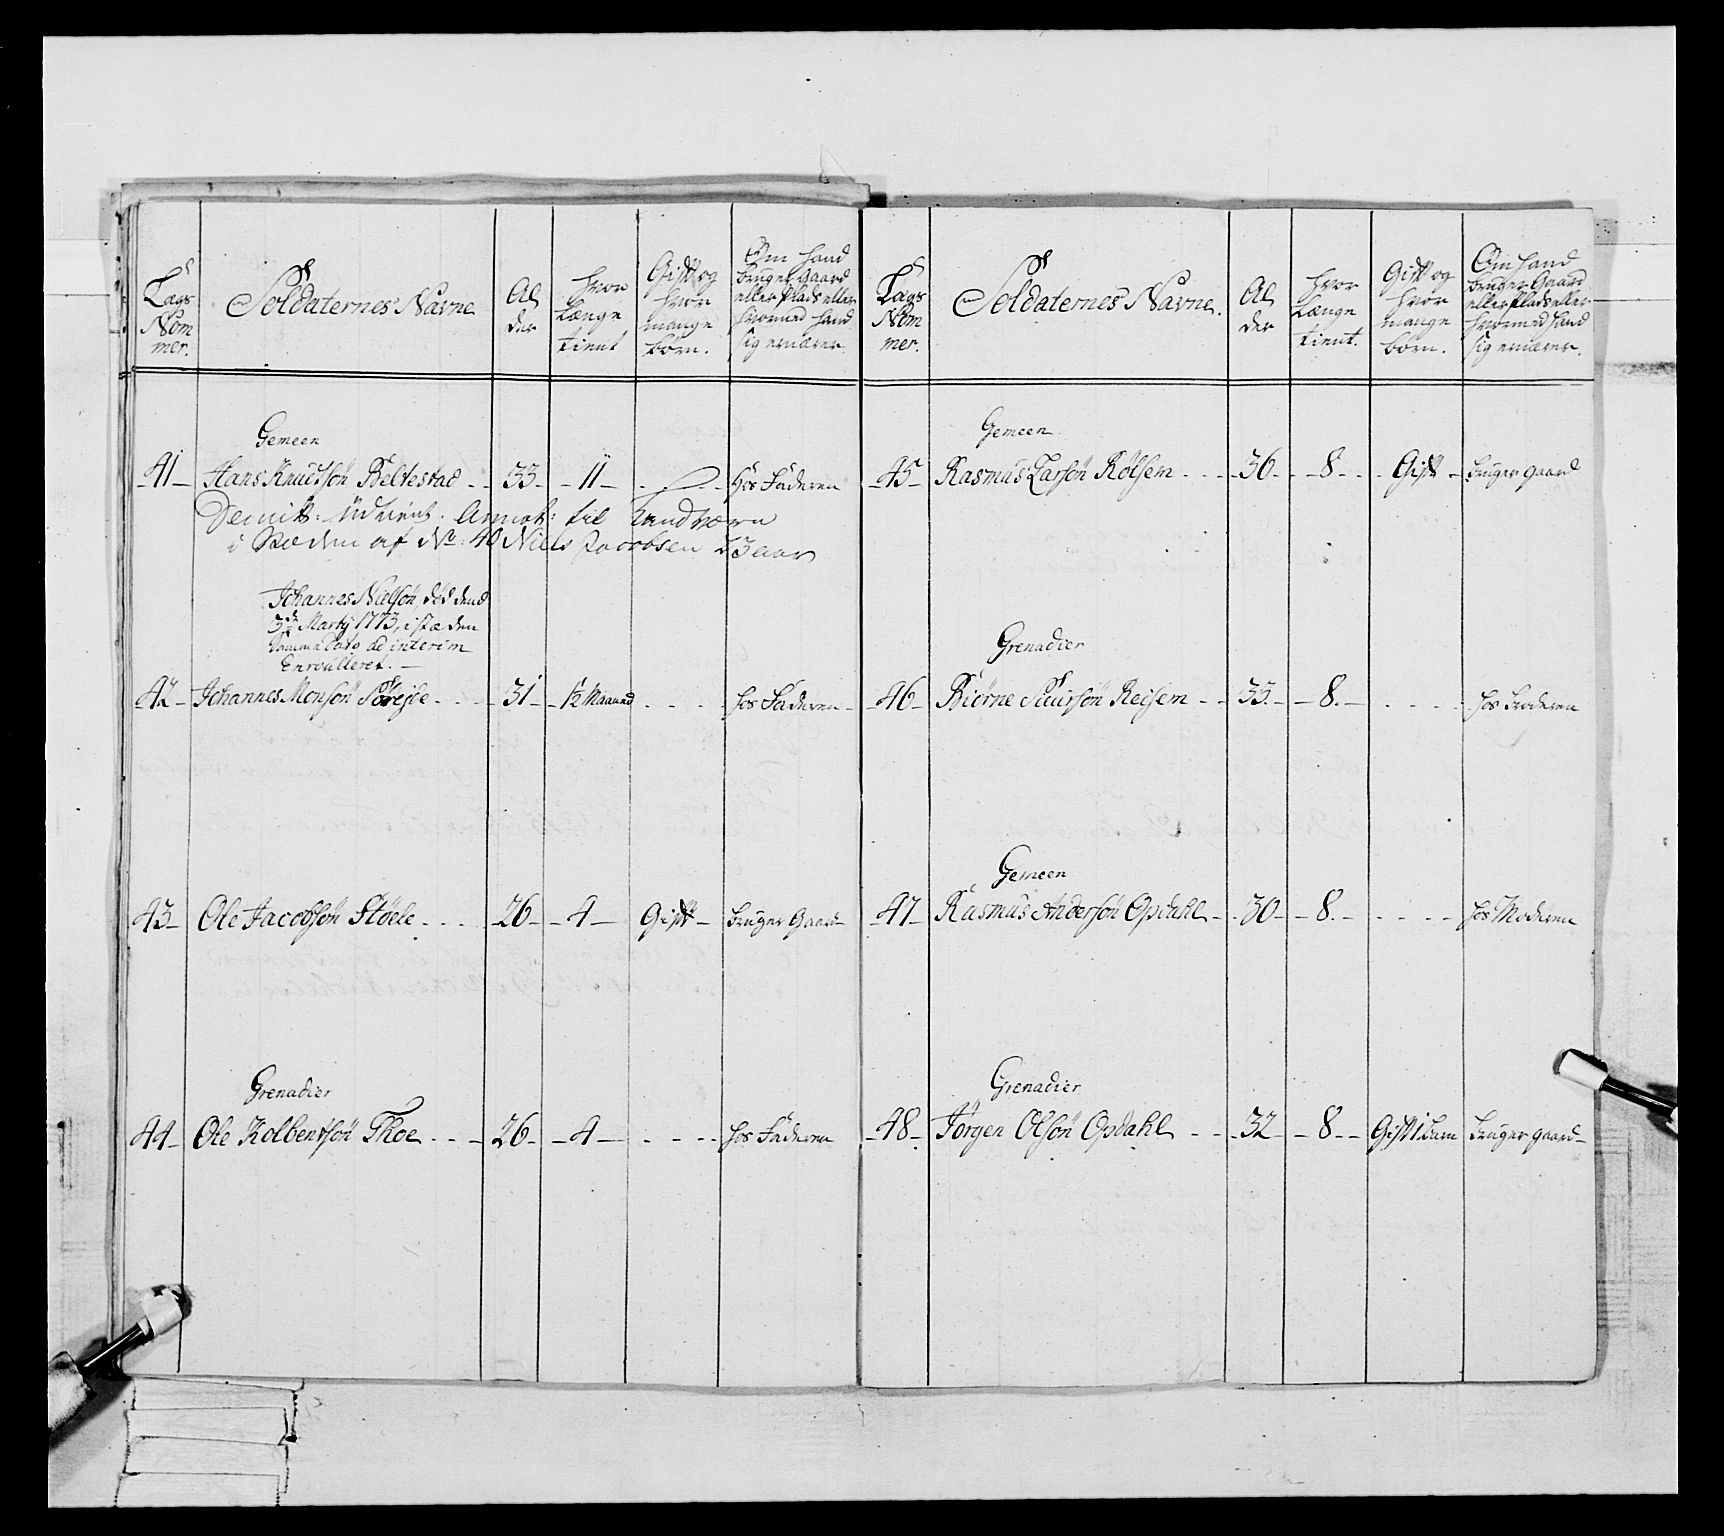 Lags
Nom
mer.
Soldaternes Navne
Al
der
hvor
længe
tient
Gift og
hvor
mange
børn.
Om hand
bruger Gaard
eller Plads eller
hvormed hand
sig ernærer.
Gemeen
41 Hans Knudsøn Beltestad 33 11 Hos Faderen
Demitt: Udtient. Annot: til Landværn
i Stæden af No: 40 Niels Jacobsen 23 aar
Johannes Nielsøn, død dend
3de Martij 1773, i stæden
samme Dato ad interim
Enroulleret.
42 Johannes Monsøn Sørejde 31 1/2 Maaned hos Faderen
43 Ole Jacobsøn Støele 26 4 Gift bruger Gaard
Grenadier
44 Ole Kolbentsøn Thoe 26 4 hos Faderen
Lags
Nom
mer.
Soldaternes Navne.
Al
der
hvor
længe
tient.
Gift og
hvor
mange
børn.
Om hand
bruger Gaard
eller Plads eller
hvormed hand
sig ernærer.
Gemeen
45 Rasmus Larsøn Rølsem 36 8 Gift bruger gaard
Grenadier
46 Biørne Siursøn Reisem 33 8 hos Broderen
Gemeen
47 Rasmus Andersøn Opdahl 30 8 hos Moderen
Grenadier
48 Jørgen Olsøn Opdahl 32 8 Gift 1 barn bruger gaard